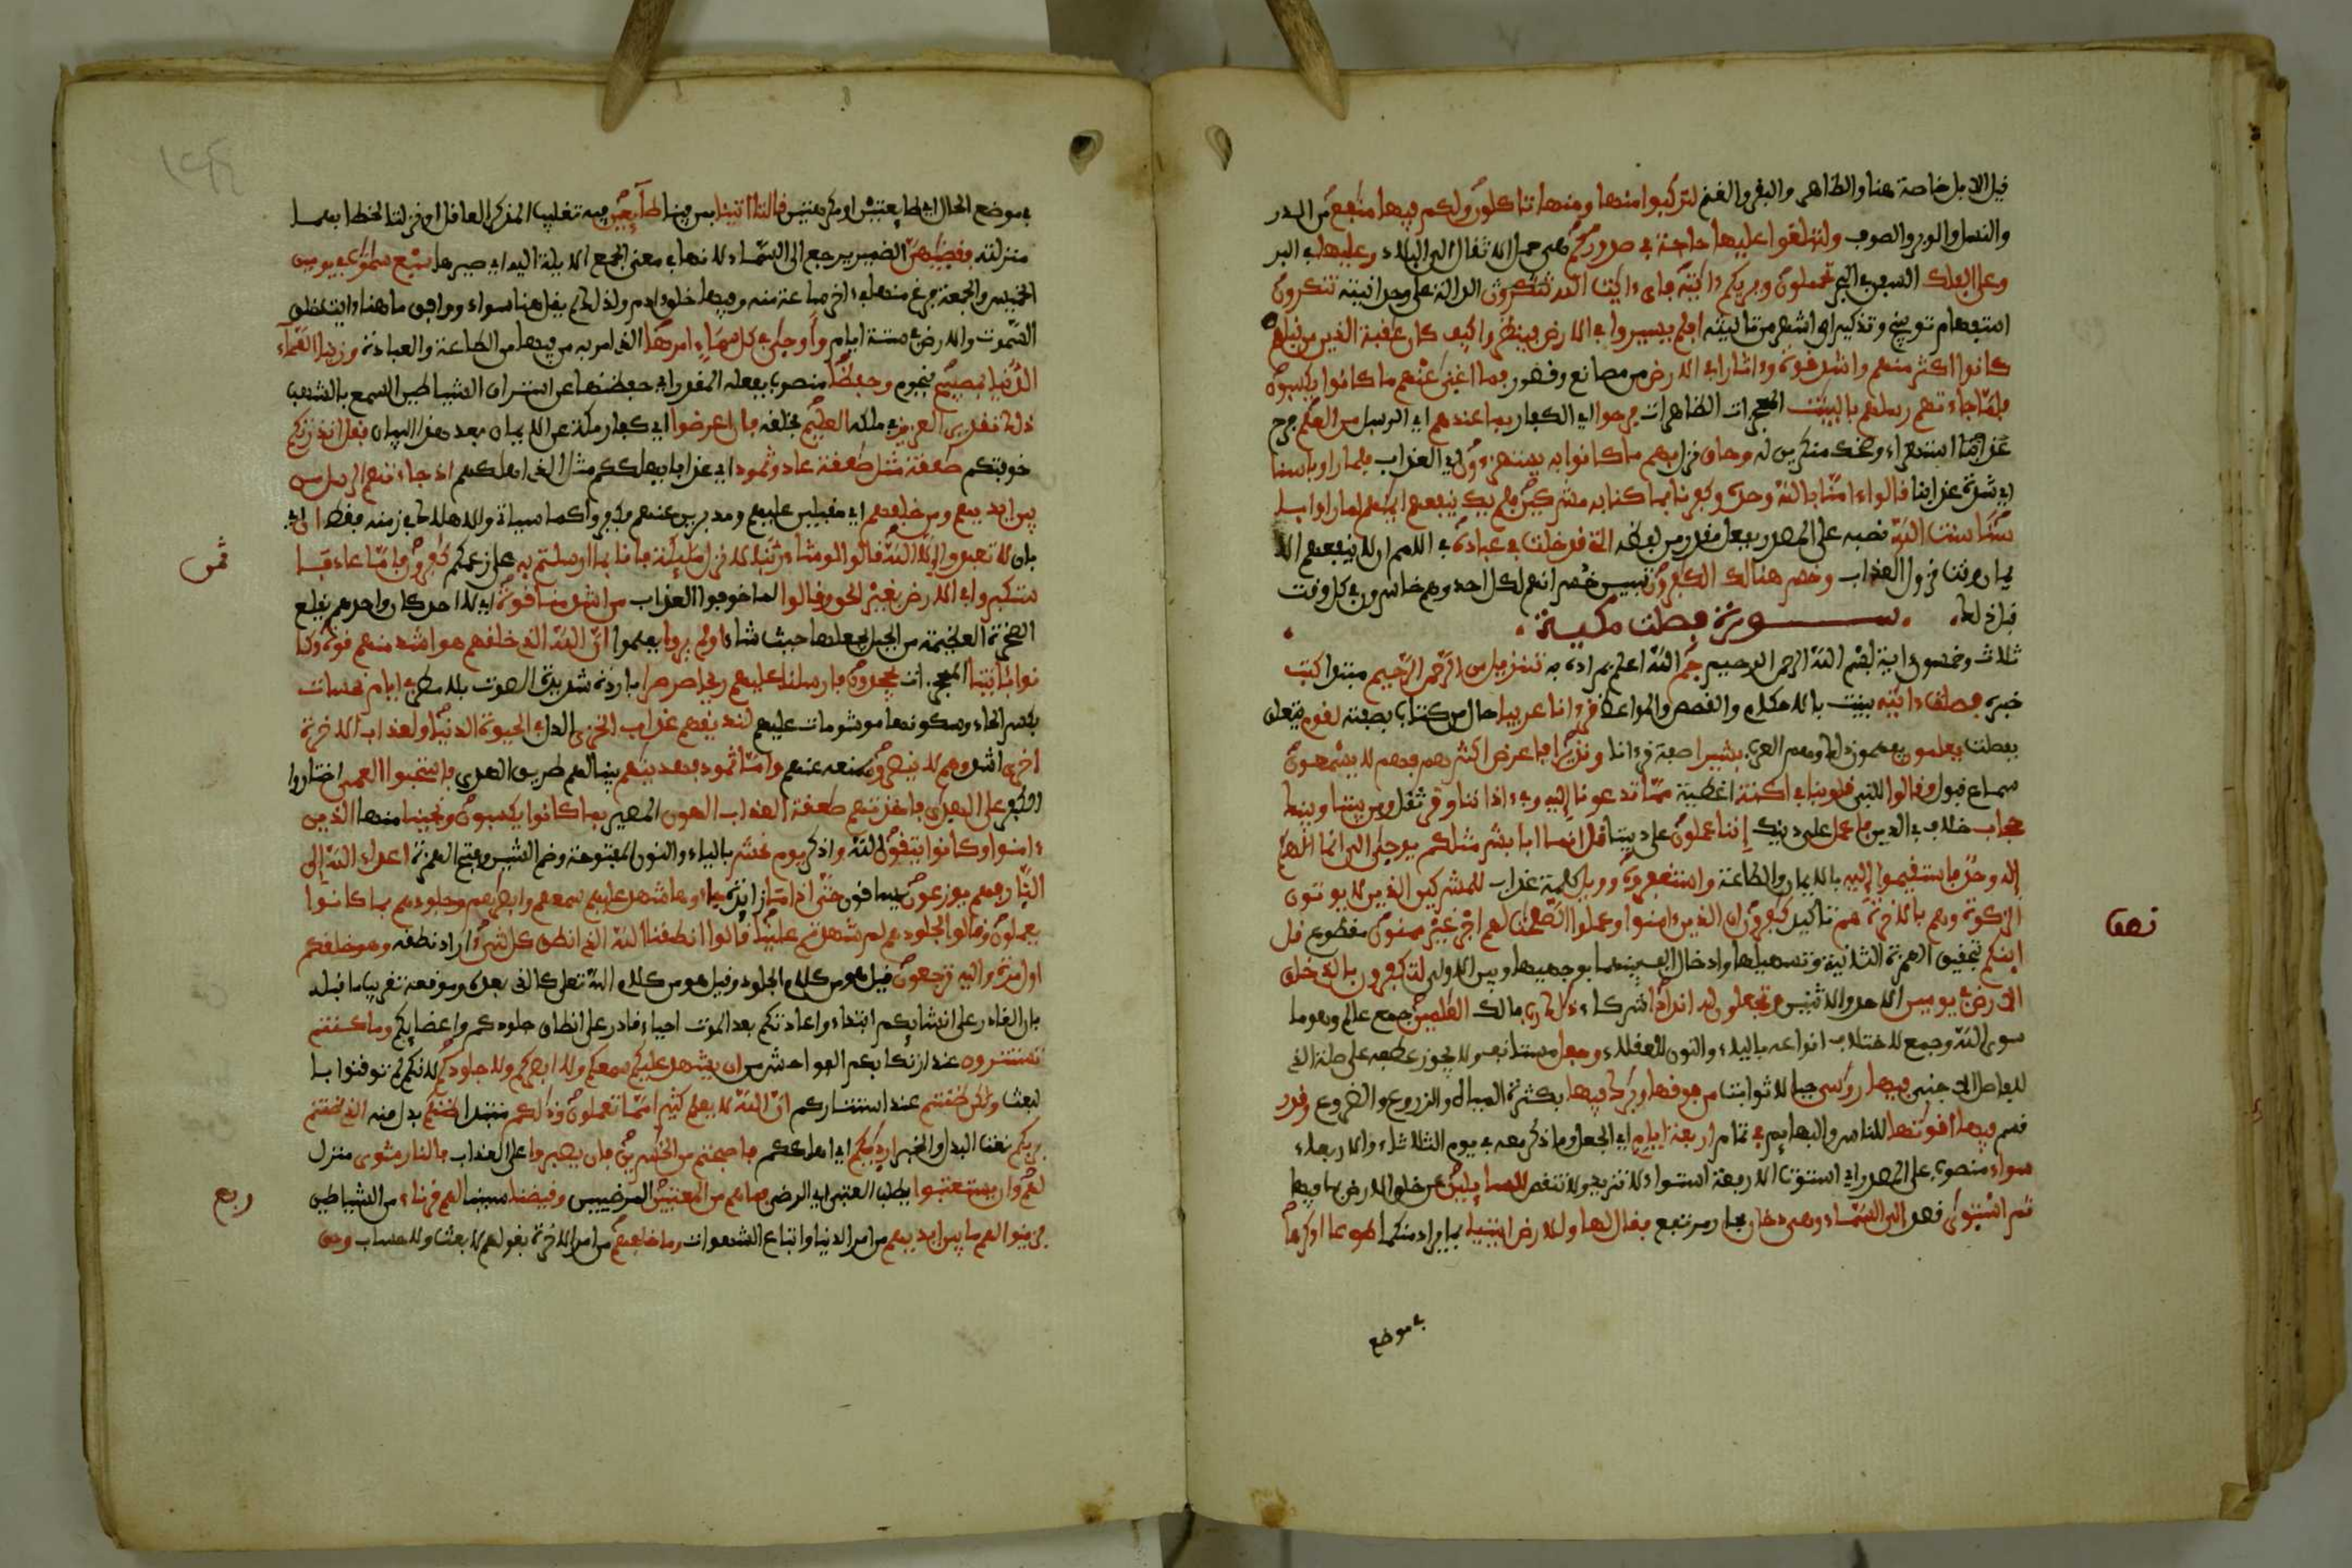 قيل الابل خاصة هنا والظاهر والبقر والغنم لتركبوا منها ومنها تاكلون ولكم فيها منفع من الدر
والنسل والوبر والصوف ولتبلغوا عليها حاجة في صدوركم هي حمل الاثقال الى البلاد وعليها في البر
وعلى الفلك السفن في البحر تحملون ويريكم ءايته فاى ءايت الله تنكرون الدالة على وحدانيته تنكرون
استفهام توبيخ وتذكير اي اشهر من تانيثه افلم يسيروا في الارض فينظروا كيف كان عقبة الذين من قبلهم
كانوا اكثر منهم واشد قوة وءاثارا في الارض من مصانع وقصور فما اغنى عنهم ما كانوا يكسبون
فلما جاءتهم رسلهم بالبينت المعجزات الظاهرات فرحوا اي الكفار بما عندهم اي الرسل من العلم فرح
استهزاء وضحك منكرين له وحاق نزل بهم ما كانوا به يستهزءون اي العذاب فلما راوا باسنا
اي شدة عذابنا قالوا ءامنا بالله وحده وكفرنا بما كنا به مشركين فلم يك ينفعهم ايمنهم لما راوا باسنا
سنت الله نصبه على المصدر بفعل مقدر من لفظه التى قد خلت في عباده في الامم ان لا ينفعهم الا
يمان وقت نزول العذاب وخسر هنالك الكفرون تبين خسرانهم لكل احد وهم خاسرون في كل وقت
قبل ذلك سورة فصلت مكية
ثلاث وخمسون اية بسم الله الرحمن الرحيم حم الله اعلم بمراده به تنزيل من الرحمن الرحيم مبتدا كتب
خبره فصلت ءايته بينت بالاحكام والقصص والمواعظ قرءانا عربيا حال من كتاب بصفته لقوم متعلق
بفصلت يعلمون يفهمون ذلك وهم العرب بشيرا صفة قرءانا ونذيرا فاعرض اكثرهم فهم لا يسمعون
سماع قبول وقالوا للنبى قلوبنا في اكنة اغطية مما تدعونا إليه وفي ءاذاننا وقر ثقل ومن بيننا وبينك
حجاب خلاف في الدين فاعمل على دينك إننا عملون على ديننا قل انما انا بشر مثلكم يوحى الي انما الهكم
إله وحد فاستقيموا إليه بالايمان والطاعة واستغفروه وويل كلمة عذاب للمشركين الذين لا يوتون
الزكوة وهم بالاخرة هم تاكيد كفرون ان الذين ءامنوا وعملوا الصلحت لهم اجر غير ممنون مقطوع قل
اينكم بتحقيق الهمزة الثانية وتسهيلها وادخال الف بينهما بوجهيها وبين الاولى لتكفرون بالذى خلق
الارض في يومين الاحد والاثنين وتجعلون له اندادا شركاء ذلك رب مالك العلمين جمع عالم وهو ما
سوى الله وجمع لاختلاف انواعه بالياء والنون للعقلاء وجعل مستانف ولا يجوز عطفه على صلة الذى
للفاصل الاجنبي فيها روسى جبالا ثوابت من فوقها وبرك فيها بكثرة المياه والزروع والضروع وقدر
قسم فيها اقوتها للناس والبهايم في تمام اربعة ايام اي الجعل وما ذكر معه في يوم الثلاثاء والاربعاء
سواء منصوب على المصدر اي استوت الاربعة استواء لا تزيد ولا تنقص للسايلين عن خلق الارض بما فيها
ثم استوى قصد الى السماء وهي دخان بخار مرتفع فقال لها وللارض ايتيا بما مرادى منكما طوعا او كرها
في موضع
نصف
في موضع الحال اي طايعتين او مكرهتين قالتا اتينا بمن فينا طآيعين فيه تغليب المذكر العاقل او نزلتا لخطابهما
منزلته فقضيهن الضمير يرجع الى السماء لانها في معنى الجمع الايلة اليه اي صيرها سبع سموت في يومين
الخميس والجمعة فرغ منها في ءاخر ساعة منه وفيها خلق ءادم ولذلك لم يقل هنا سواء ووافق ما هنا ءايت خلق
السموت والارض في ستة ايام وأوحى في كل سماء امرها الذى امر به من فيها من الطاعة والعبادة وزينا السماء
الدنيا بمصبيح بنجوم وحفظا منصوب بفعله المقدر اي حفظنها عن استراق الشياطين السمع بالشهب
ذلك تقدير العزيز في ملكه العليم بخلقه فان اعرضوا اي كفار مكة عن الايمان بعد هذا البيان فقل انذرتكم
خوفتكم صعقة مثل صعقة عاد وثمود اي عذابا يهلككم مثل الذى اهلكهم اذ جاءتهم الرسل من
بين ايديهم ومن خلفهم اي مقبلين عليهم ومدبرين عنهم فكفروا كما سياتي والاهلاك في زمنه فقط ان اي
بان لا تعبدوا إلا الله قالوا لو شاء ربنا لانزل مليكة فانا بما ارسلتم به على زعمكم كفرون فاما عاد فا
ستكبروا في الارض بغير الحق وقالوا لما خوفوا العذاب من اشد منا قوة اي لا احد كان واحدهم يقلع
الصخرة العظيمة من الجبل يجعلها حيث شاء اولم يروا يعلموا ان الله الذى خلقهم هو اشد منهم قوة وكا
نوا بئايتنا المعجزات يجحدون فارسلنا عليهم ريحا صرصرا باردة شديدة الصوت بلا مطر في ايام نحسات
بكسر الحاء وسكونها مشومات عليهم لنذيقهم عذاب الخزى الذل في الحيوة الدنيا ولعذاب الاخرة
اخزى اشد وهم لا ينصرون بمنعه عنهم واما ثمود فهدينهم بينا لهم طريق الهدى فاستحبوا العمى اختاروا
الكفر على الهدى فاخذتهم صعقة العذاب الهون المهين بما كانوا يكسبون ونجينا منها الذين
ءامنوا وكانوا يتقون الله واذكر يوم نحشر بالياء والنون المفتوحة وضم الشين وفتح الهمزة اعداء الله إلى
النار فهم يوزعون يساقون حتى اذا ما زائدة جاءوها شهد عليهم سمعهم وابصرهم وجلودهم بما كانوا
يعملون وقالوا لجلودهم لم شهدتم علينا قالوا انطقنا الله الذى انطق كل شيء اراد نطقه وهو خلقكم
اول مرة واليه ترجعون قيل هو من كلام الجلود وقيل هو من كلام الله تعلى كالذى بعده وموقعه تقريب ما قبله
بان القادر على انشايكم ابتداء واعادتكم بعد الموت احياء قادر على انطاق جلودكم واعضايكم وما كنتم
تستترون عند ارتكابكم الفواحش من ان يشهد عليكم سمعكم ولا ابصركم ولا جلودكم لانكم لم توقنوا با
لبعث ولكن ظننتم عند استتاركم ان الله لا يعلم كثيرا مما تعملون وذلكم مبتدا ظنكم بدل منه الذى ظننتم
بربكم نعت البدل والخبر ارديكم اي اهلككم فاصبحتم من الخسرين فان يصبروا على العذاب فالنار مثوى منزل
لهم وان يستعتبوا يطلبوا العتبى اي الرضى فما هم من المعتبين المرضيين وقيضنا سببنا لهم قرناء من الشياطين
فزينوا لهم ما بين ايديهم من امر الدنيا واتباع الشهوات وما خلفهم من امر الاخرة بقولهم لا بعث ولا حساب وحق
ثمن
ربع